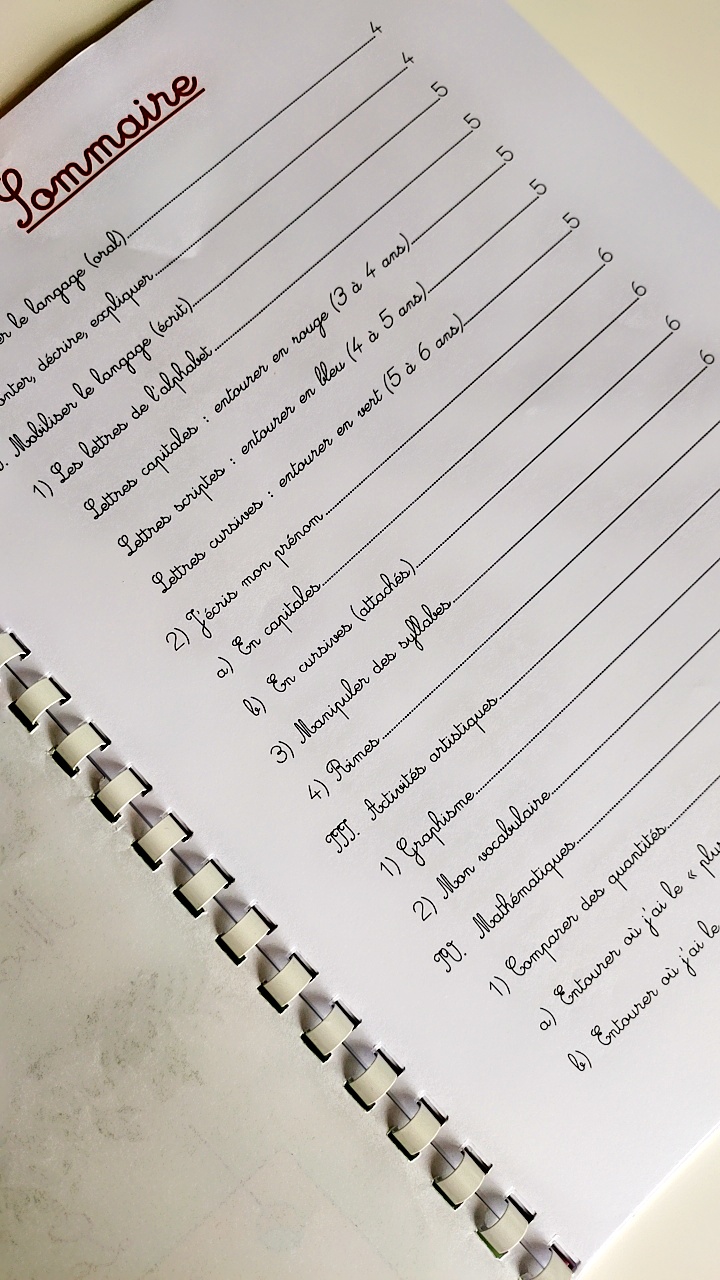 Sommaire
er le langage (oral)........4
onter, décrire, expliquer........4
. Mobiliser le langage (écrit)........5
1) Les lettres de l'alphabet........5
Lettres capitales : entourer en rouge (3 à 4 ans)........5
Lettres scriptes : entourer en bleu (4 à 5 ans)........5
Lettres cursives : entourer en vert (5 à 6 ans)........5
2) J'écris mon prénom........6
a) En capitales........6
b) En cursives (attachés)........6
3) Manipuler des syllabes........6
4) Rimes........
III. Activités artistiques........
1) Graphisme........
2) Mon vocabulaire........
IV. Mathématiques........
1) Comparer des quantités........
a) Entourer où j'ai le « plu
b) Entourer où j'ai le